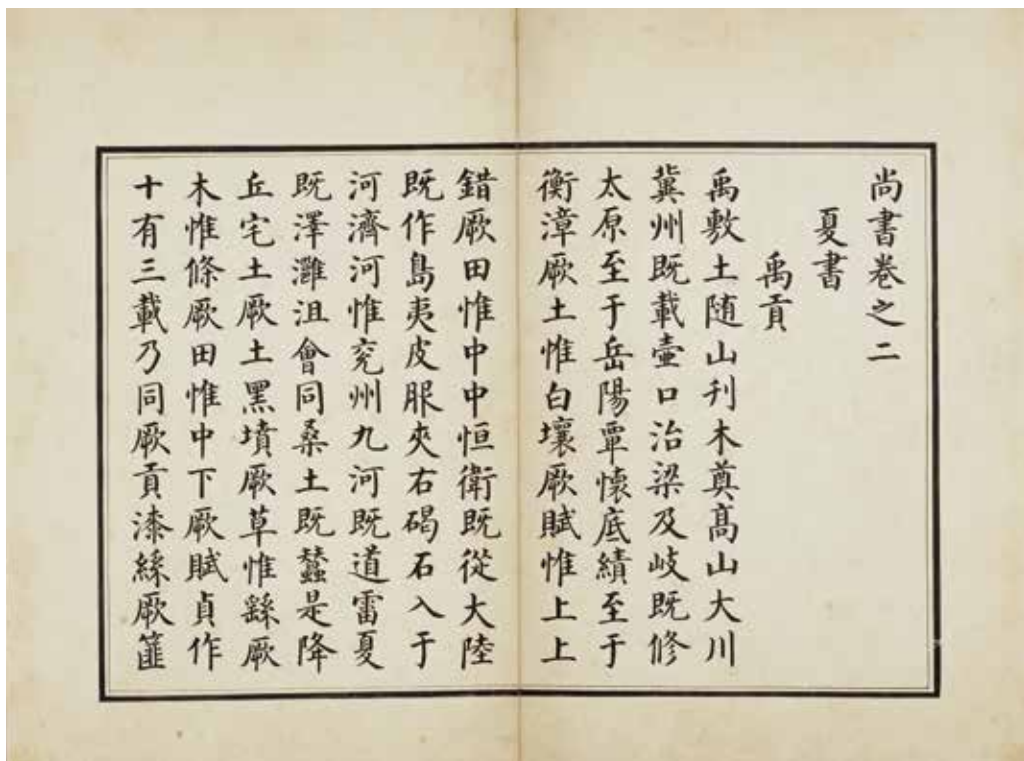 尚書卷之二
夏書
禹貢
禹敷土随山刋木奠高山大川
冀州既載壷口治梁及岐既修
太原至于岳陽覃懷底績至于
衡漳厥土惟白壤厥賦惟上上
錯厥田惟中中恒衛既從大陸
既作島夷皮服夾右碣石入于
河濟河惟兖州九河既道雷夏
既澤灉沮會同桑土既蠶是降
丘宅土厥土黑墳厥草惟繇厥
木惟條厥田惟中下厥賦貞作
十有三載乃同厥貢漆絲厥篚